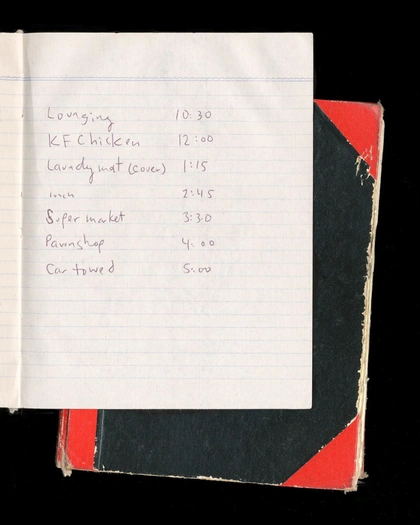 Lounging 10:30
KF Chicken 12:00
Laundymat (cover) 1:15
2:45
Super market 3:30
Pawnshop 4:00
Car towed 5:00